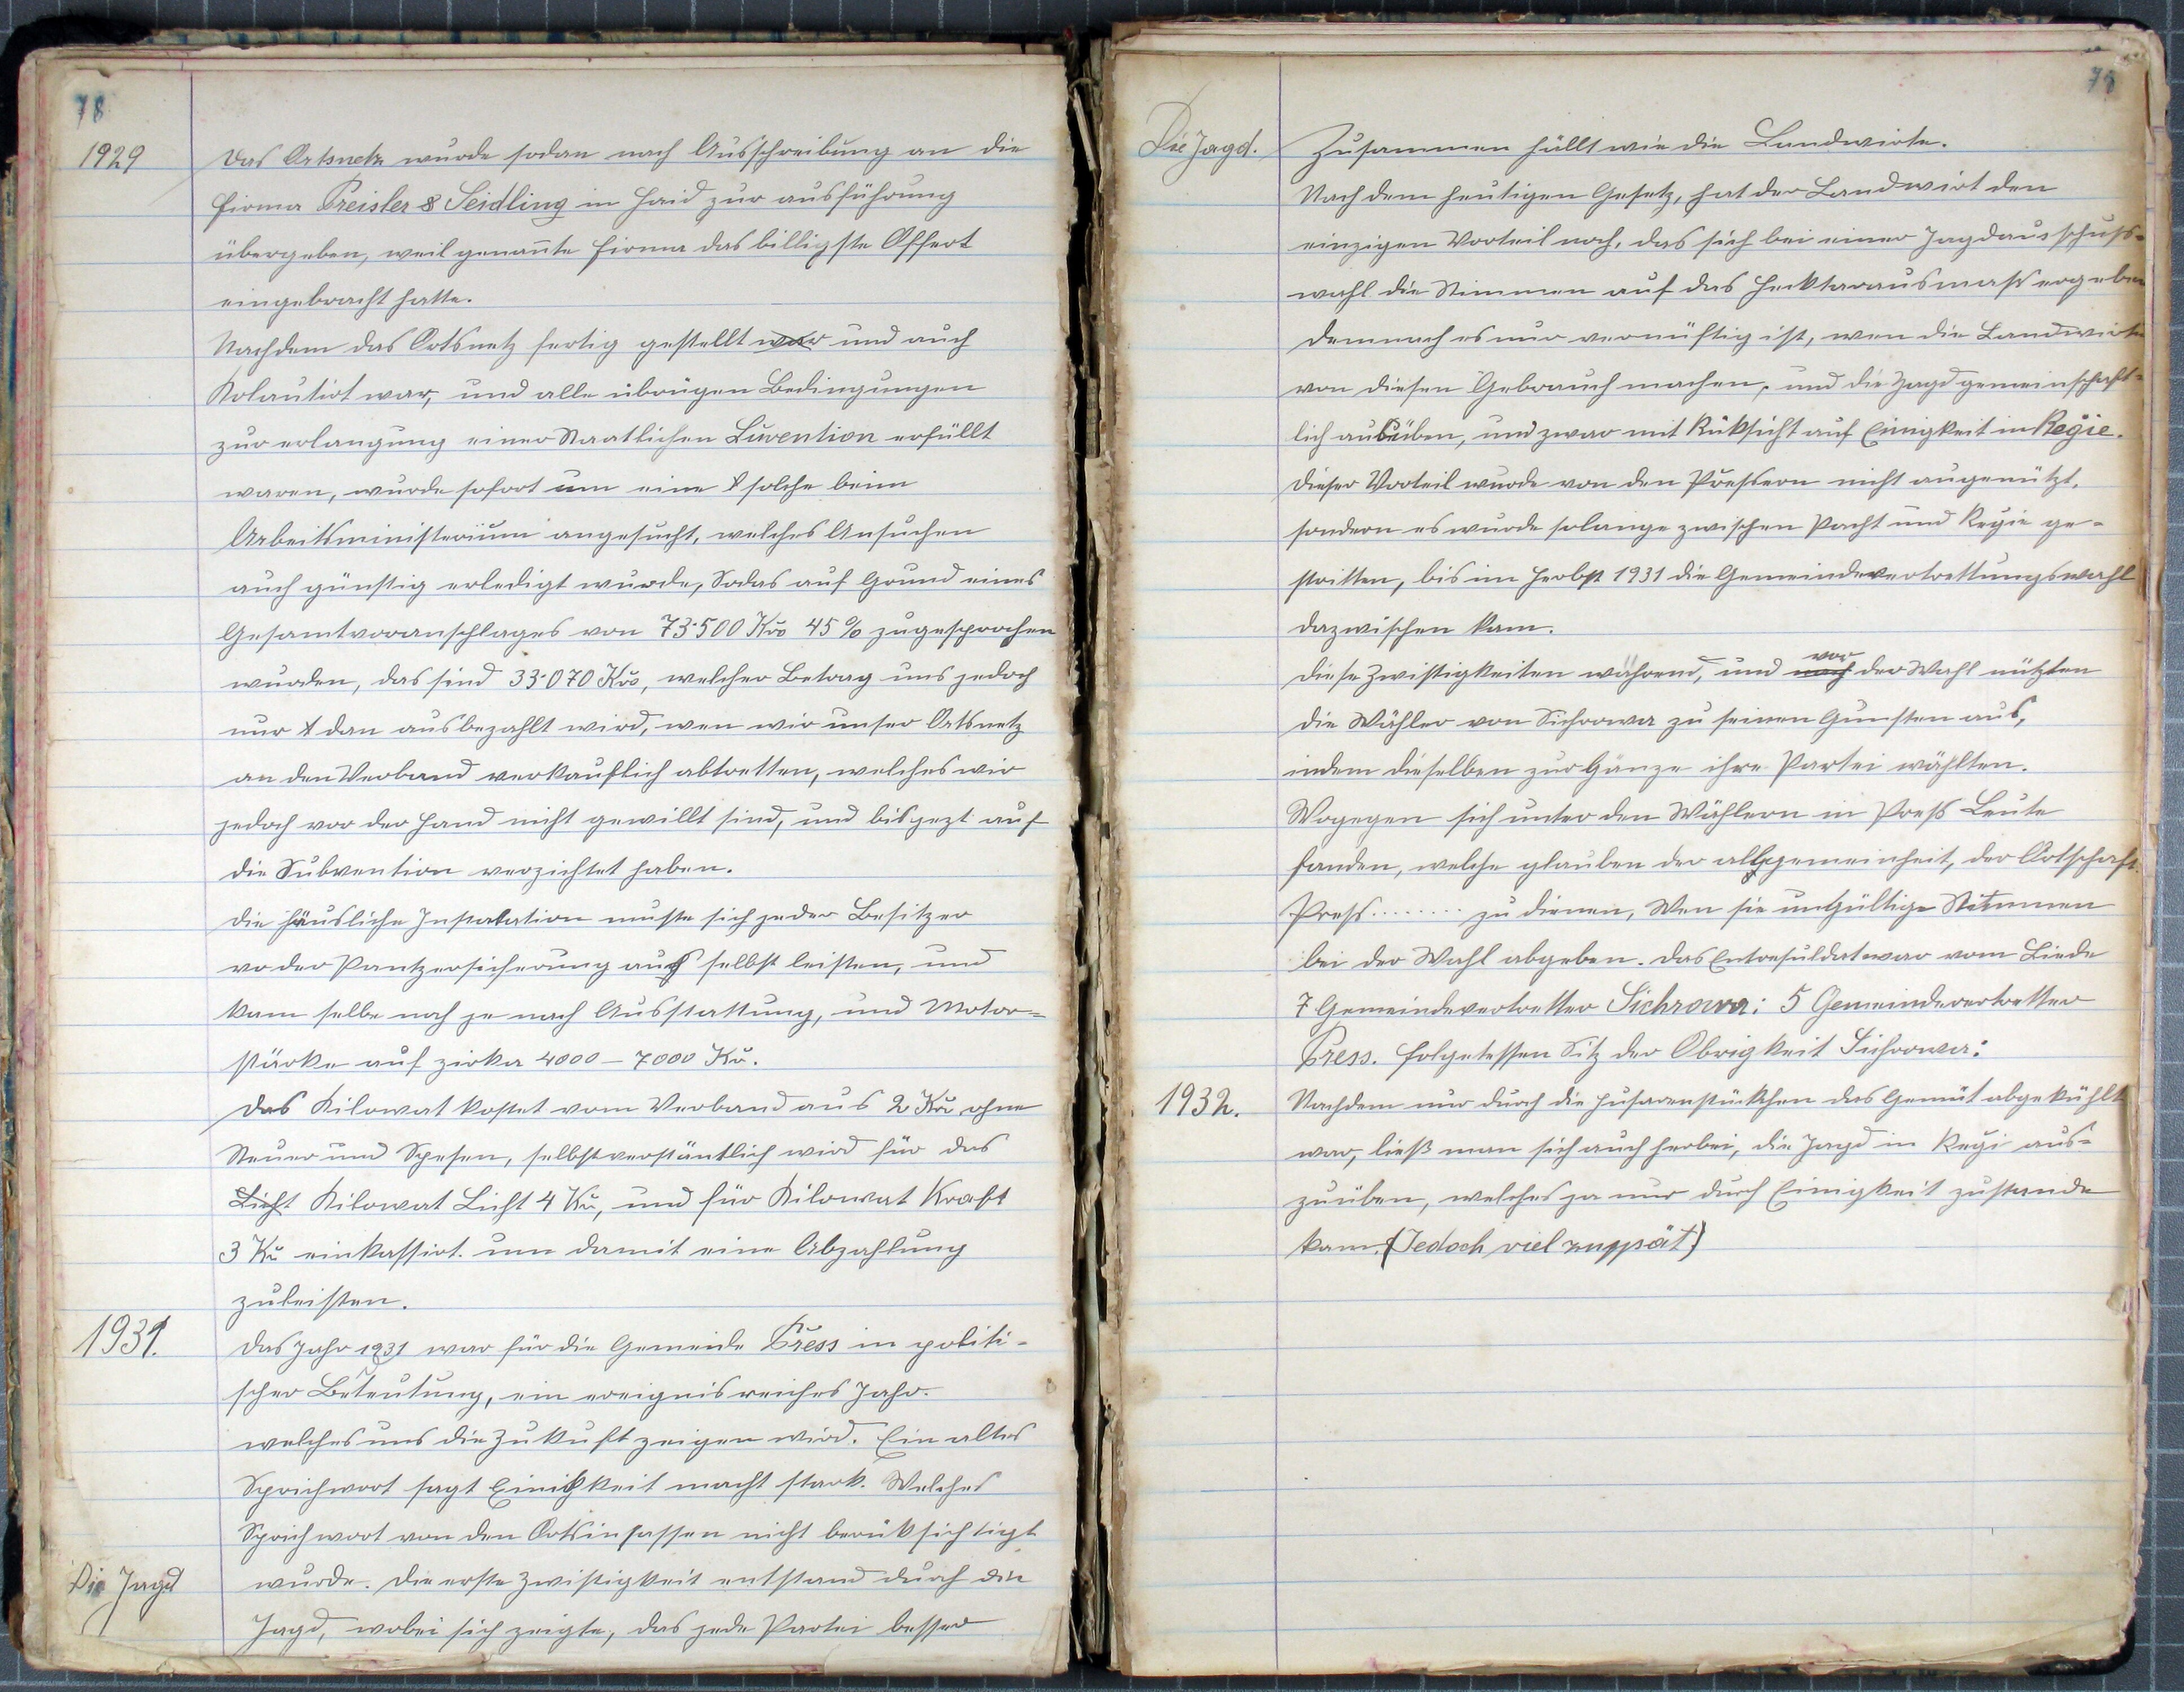 78
1929
Das Ortsnetz wurde sodan nach Ausschreibung an die
Firma Preisler & Seidling in Haid zur ausführung
übergeben, weil genannte Firma das billigste Offert
eingebracht hatte.
Nachdem das Ortsnetz fertig gestellt war und auch
Kolautirt war, und alle übrügen Bedingungen
zur erlangung einer Staatlichen Suvention erfüllt
waren, wurde sofort um eine solche beim
Arbeitsministerium angesucht, welches Ansuchen
auch günstig erledigt wurde, Sodas auf Grund eines
Gesamtvoranschlages von 73·500 Kčo 45% zugesprochen
wurden, das sind 33·070 Kčo, welcher Betrag uns jedoch
nur dan ausbezahlt wird, wen wir unser Ortsnetz
an den Verband verkauflich abtretten, welches wir
jedoch vor der Hand nicht gewillt sind, und bis jezt auf
die Subvention verzichtet haben.
Die häusliche Instalation muste sich jeder Besitzer
vor der Pantzersicherung auf selbst leisten, und
kam selbe noch je nach Ausstattung, und Motor=
stärke auf zirka 4000 – 7000 Kč.
Das Kilowat kostet vom Verband aus 2 Kč ohne
Steuer und Spesen, selbstverstäntlich wird für das
Licht Kilowat Licht 4 Kč, und für Kilowat Kraft
3 Kč einkassirt. um damit eine Abzahlung
zuleisten.
1931.
Das Jahr 1931 war für die Gemeinde Press in politi-
scher BeTeutung, ein ereignisreiches Jahr.
welches uns die Zukuft zeigen wird. Ein altes
Sprichwort sagt Einikkeit macht stark. Welches
Sprichwort von den Ortsinsassen nicht berüksichtigt
Die Jagd
wurde. Die erste Zwistigkeit entstand durch die
Jagd, wobei sich zeigte, das jede Partei besser
79
Die Jagd.
Zusammen hällt wie die Landwirte.
Nach dem heutigen Gesetz, hat der Landwirt den
einzigen Vorteil noch, das sich bei einer Jagdausschuss-
wahl die Stimmen auf das Hecktarausmass ergeben
demnach es nur vernüftig ist, wen die Landwirte
von diesen Gebrauch machen, und die Jagd gemeinschaft-
lich ausüben, und zwar mit Rüksicht auf Einigkeit in Regie.
Dieser Vorteil wurde von den Pressern nicht augenützt,
sondern es wurde solange zwischen Pacht und Regie ge-
stritten, bis im Herbst 1931 die Gemeindevertrettungswahl
dazwischen kam.
Diese Zwistigkeiten während, und noch vor der Wahl nützten
die Wähler von Sichrowa zu seinen Gunsten aus,
indem dieselben zur Gänze ihre Partei wählten.
Wogegen sich unter den Wählern in Press Leute
fanden, welche glauben der allgemeinheit, der Ortschaft
Press ........ zu dienen, Wen sie unGültige Stimmen
bei der Wahl abgeben. Das Entresuldat war vom Liede
7 Gemeindevertretter Sichrowa: 5 Gemeindevertretter
Press. Folgetessen Sitz der Obrigkeit Sichrowa:
1932.
Nachdem nur durch die Husarenstükchen das Gemüt abgekühlt
war, ließ man sich auch herbei, die Jagd in Regi aus-
zuüben, welches ja nur durch Einigkeit zustande
kam. (Jedoch viel zuspät)